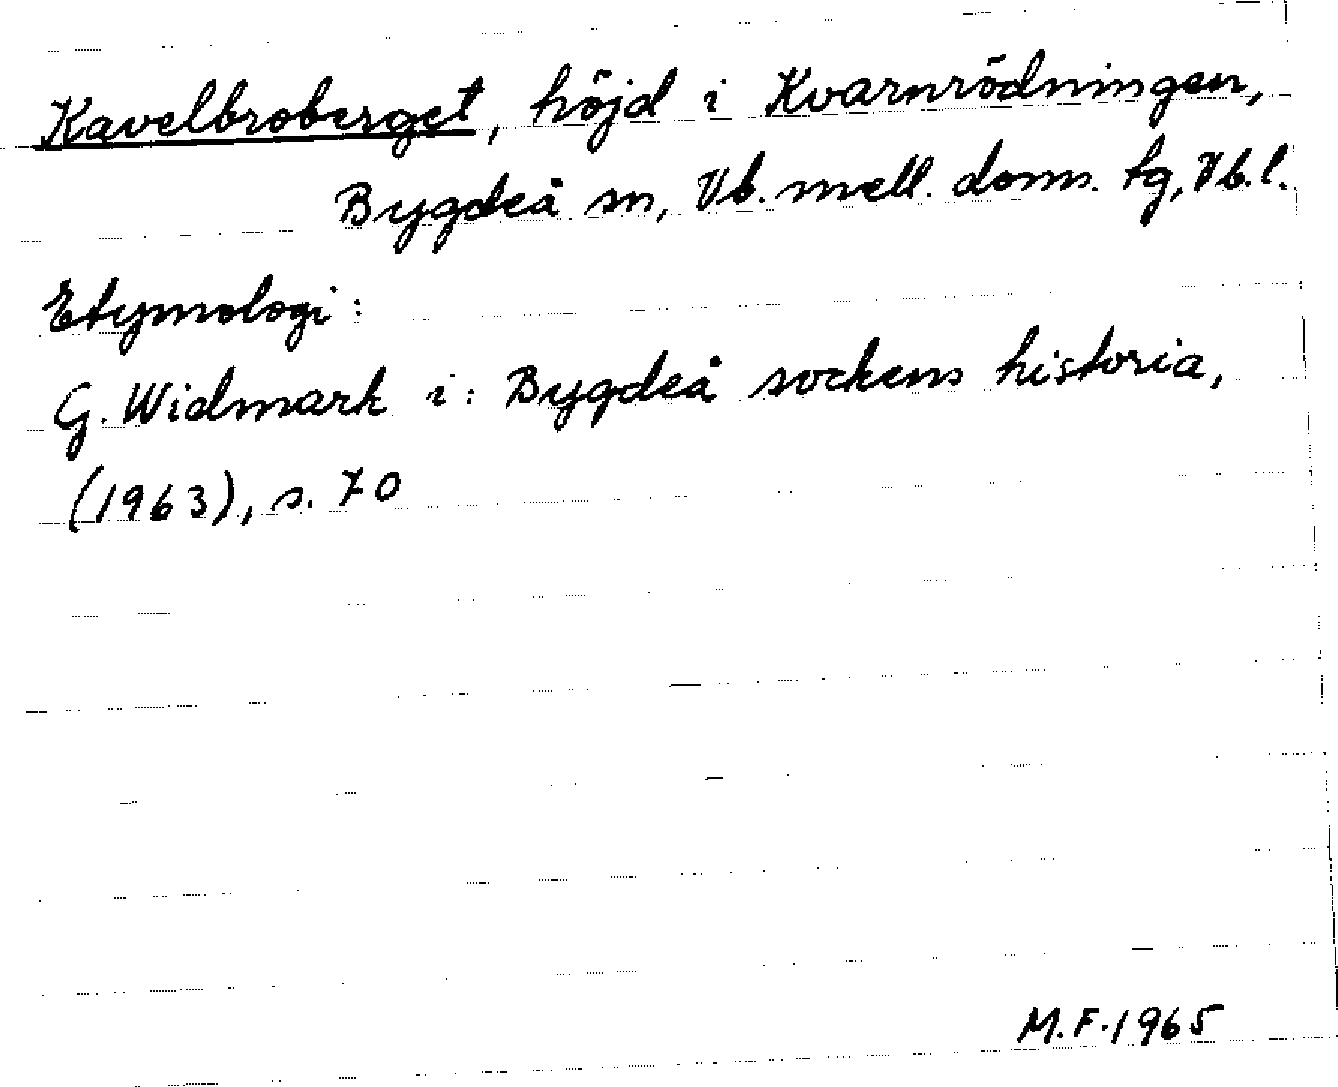 Kavelbroberget, höjd i Kvarnrödningen,
Bygdeå sn, Vb. mell. doms. tg, Vb. l.
Etymologi:
G. Widmark i: Bygdeå sockens historia,
(1963), s. 70
M.F. 1965